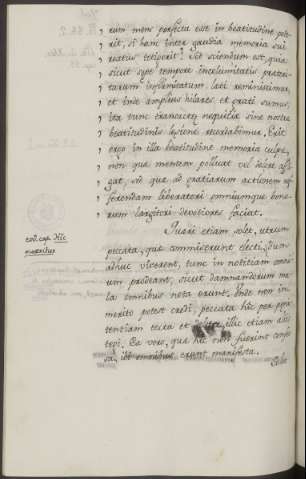 , rum mem perfecta est in beatitudine pote-
, rit, si hanc inter gaudia memoria sui
, reatus tetigerit? Sed sciendum est, quia
, sicut sæpe tempore incolumitatis præteri-
, tarum infirmitatum læti reminiscimur,
, et inde amplius hilares et grati sumus,
, ita tunc transactæ nequitiæ sine nostræ
, beatitudinis læsione recordabimur. Erit
, ergo in illa beatitudine memoria culpæ,
, non quæ mentem polluat vel
, gat, sed quæ ad gratiarum actionem re-
, ferendam liberatori omniumque bono-
, rum largitori devotiores faciat.
Quæri etiam solet, utrum
peccata, quæ commiserunt electi, dum
adhuc viverent, tunc in notitiam omni-
um prodeant, sicut damnandorum ma-
la omnibus nota erunt. Unde non im-
merito potest credi, peccata hic per pœni-
tentiam tecta et illic etiam aliis
tegi. Ea vero, quæ hic non fuerint confes-
sa, omnibus erunt manifesta.
cod. cap. Hic